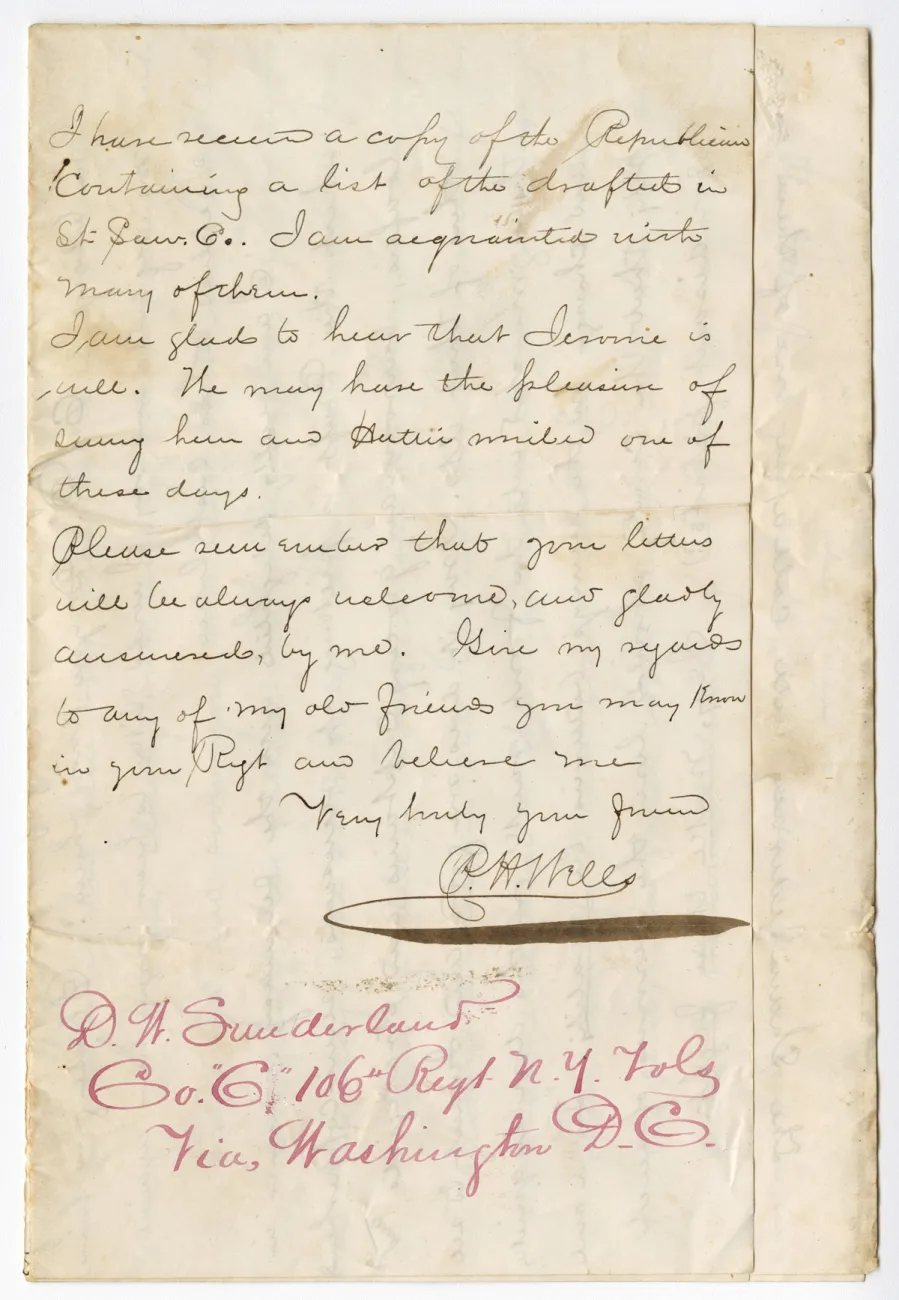 I have received a copy of the Republican
Containing a list of the drafted in
St Law. Co. I am acquainted with
many of them.
I am glad to hear that Jerome is
well. We may have the pleasure of
seeing him and Hattie united one of
these days.
Please remember that your letters
will be always welcome, and gladly
answered, by me. Give my regards
to any of my old friends you may know
in your Regt and believe me
Very truly your friend
P. H. Wells
D. W. Sunderland
Co. "C," 106" Regt N. Y. Vols
Via, Washington D. C.